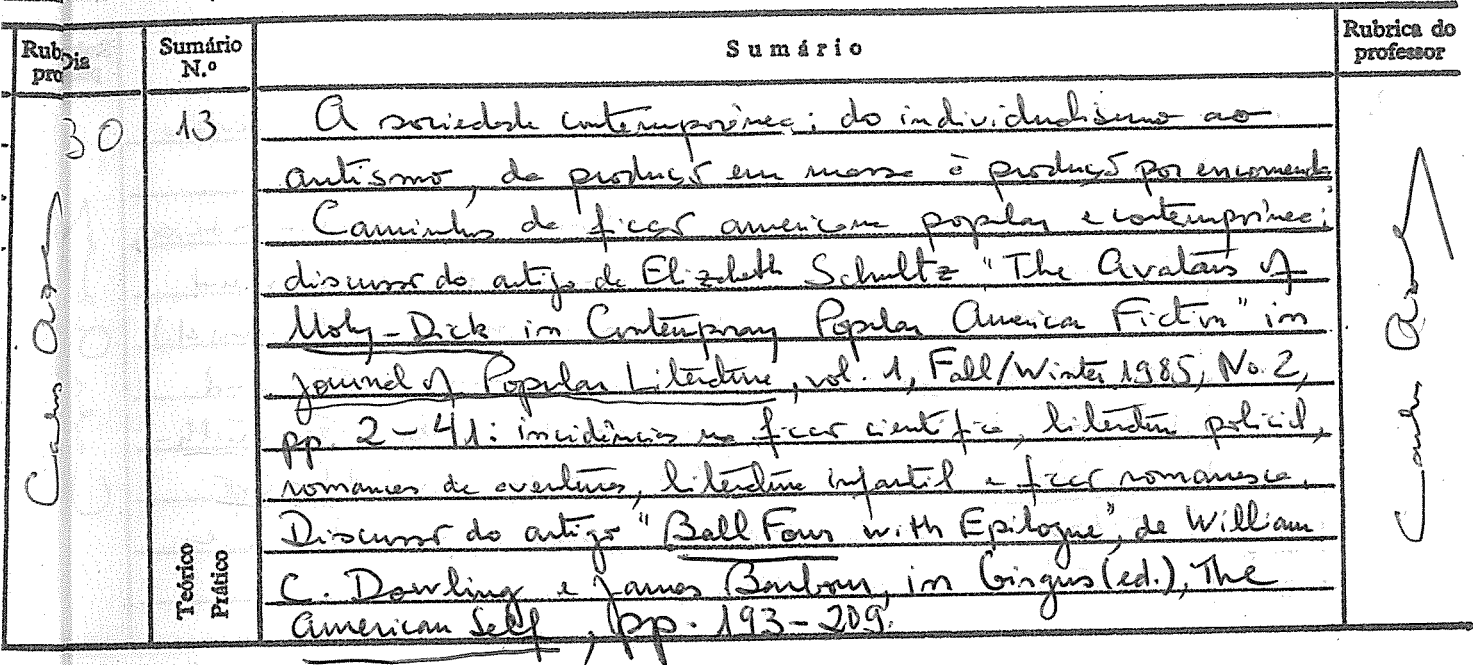 Rub
pro
Dia
Sumário
N.º
Sumário
Rubrica do
professor
30
13
A sociedade contemporânea: do individualismo ao
autismo, da produção em massa à produção por encomenda
Caminhos da ficção americana popular e contemporânea:
discussão do artigo de Elizabeth Schultz "The Avatars of
Moby-Dick in Contemporary Popular American Fiction" in
Journal of Popular Literature, vol. 1, Fall/Winter 1985, No. 2,
pp. 2-41: incidências na ficção científica, literatura policial,
romances de aventuras, literatura infantil e ficção romanesca.
Discussão do artigo "Ball Four with Epilogue", de William
C. Dowling e James Barbour, in Girgus (ed.), The
American Self, pp. 193-209.
Teórico
Prático
Carlos